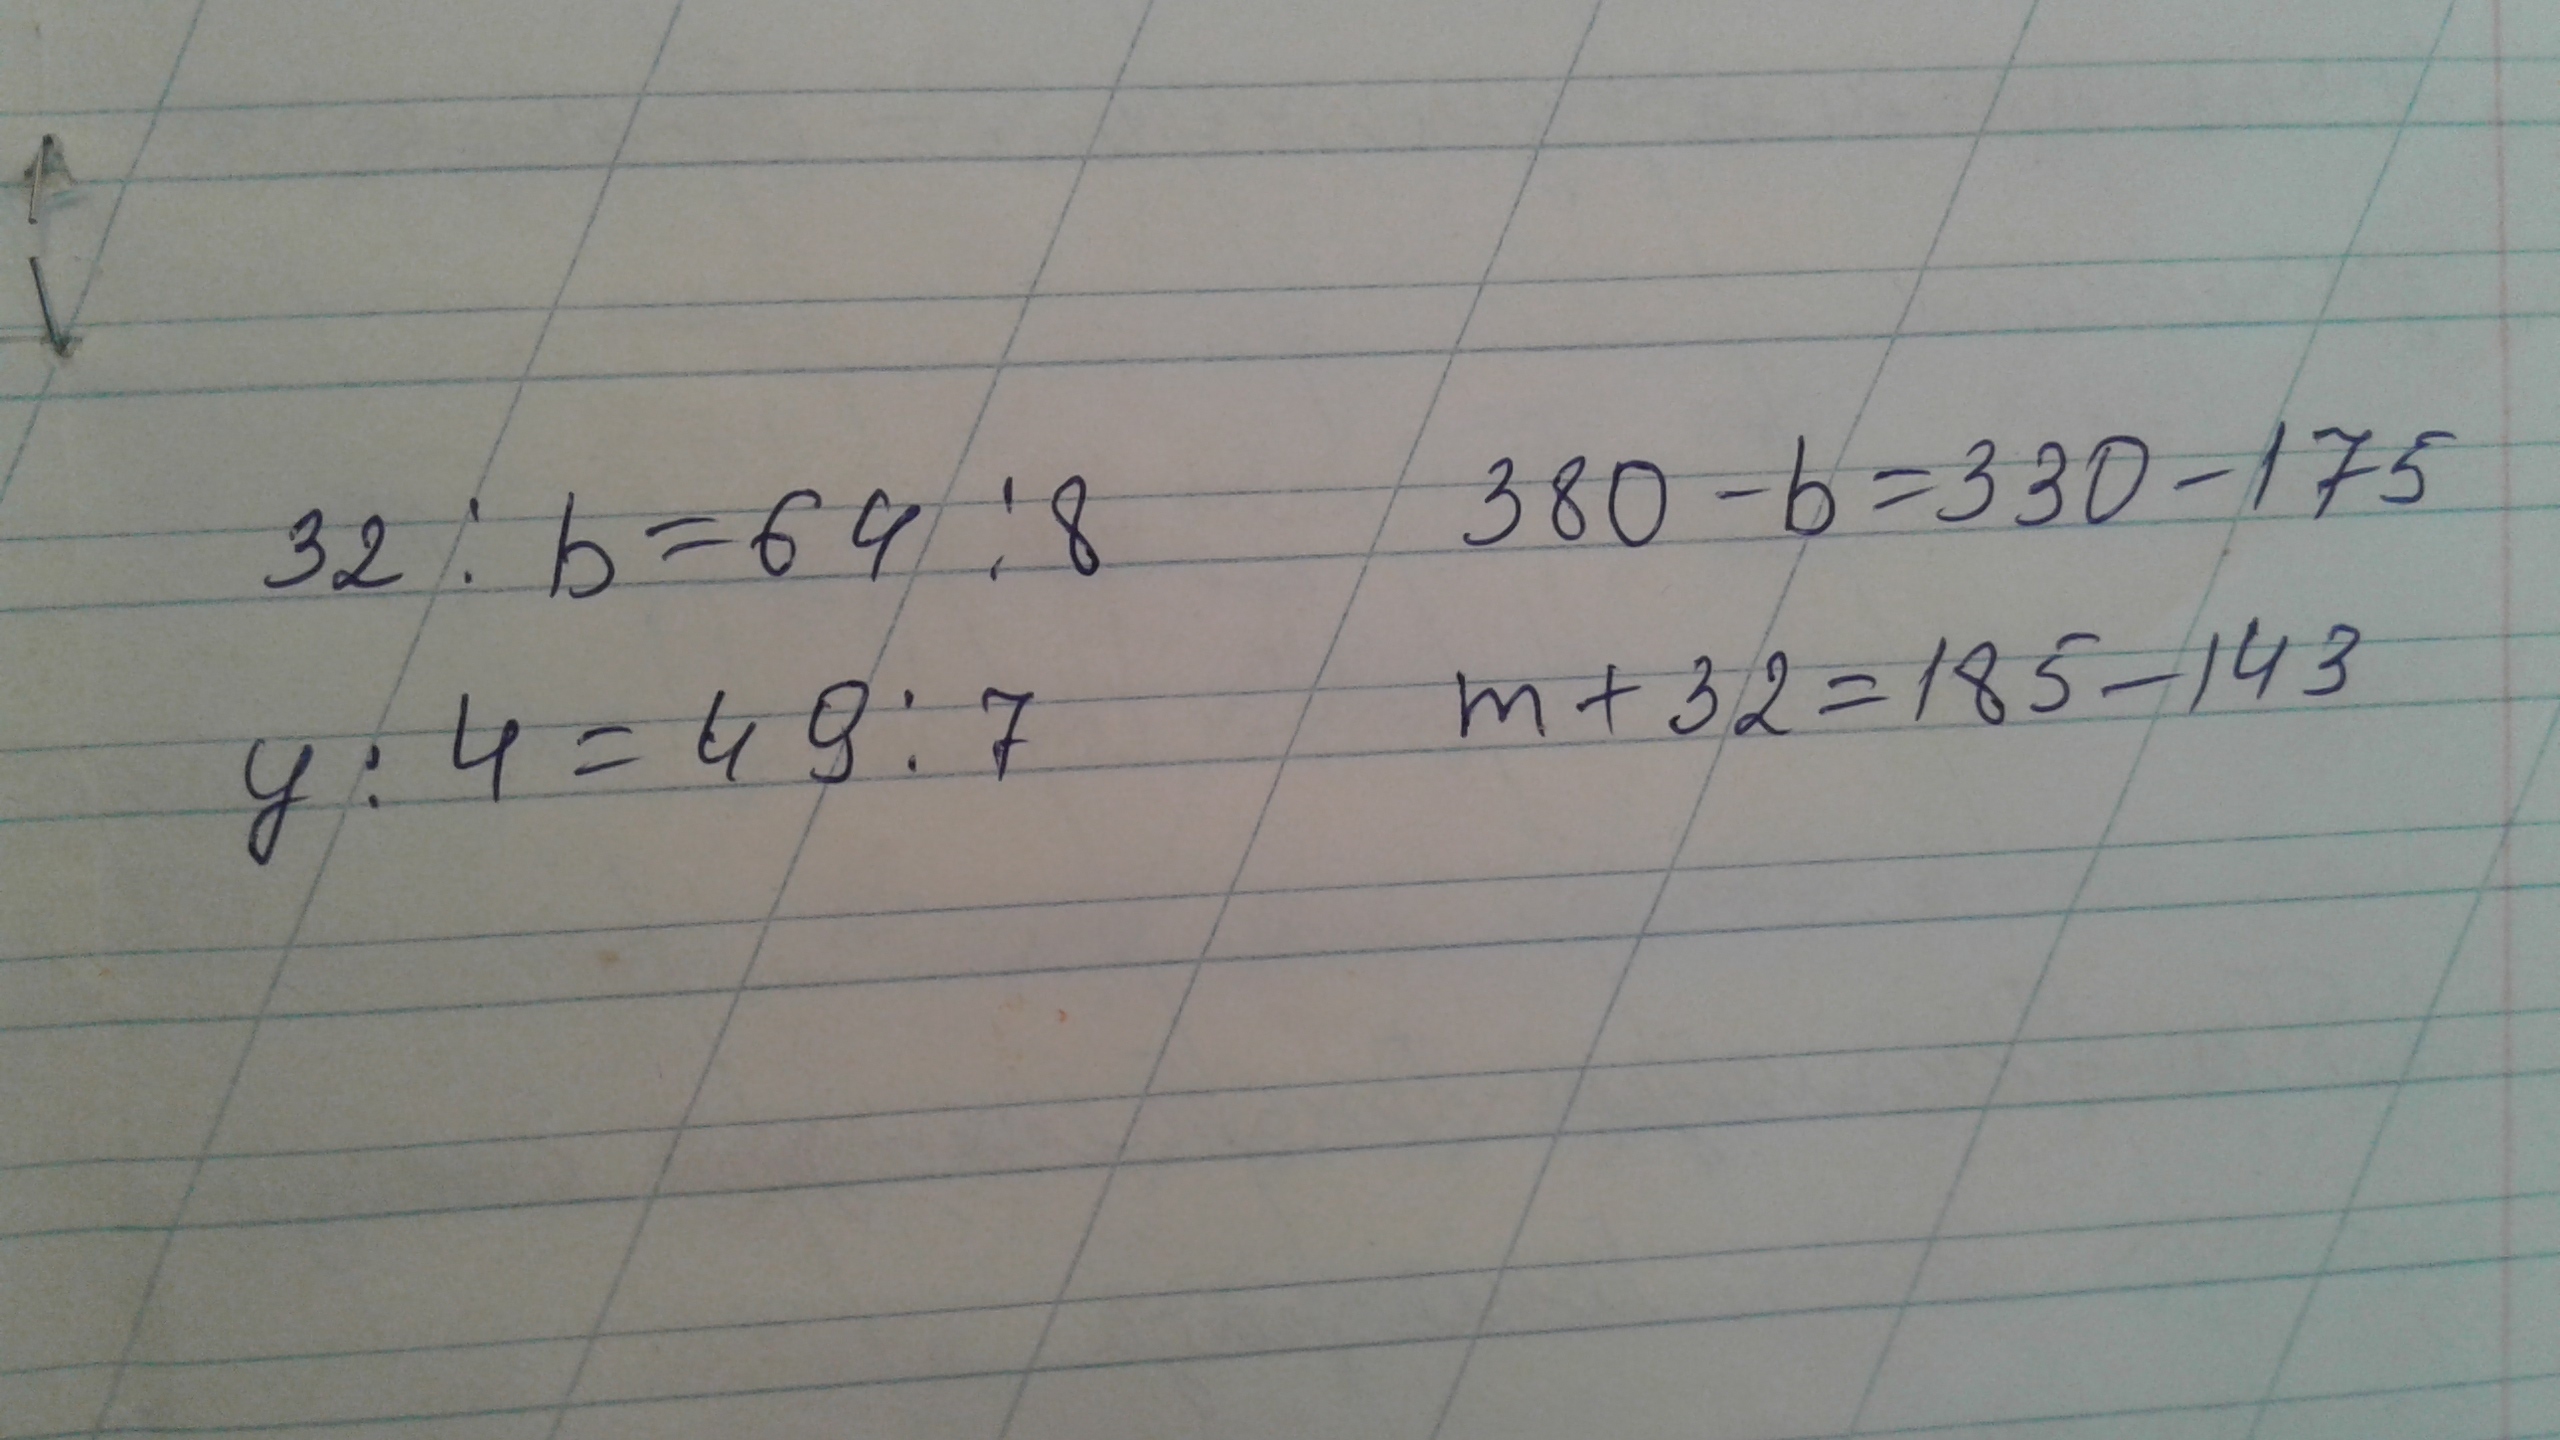 32 : b = 64 : 8
y : 4 = 49 : 7
380 - b = 330 - 175
m + 32 = 185 - 143